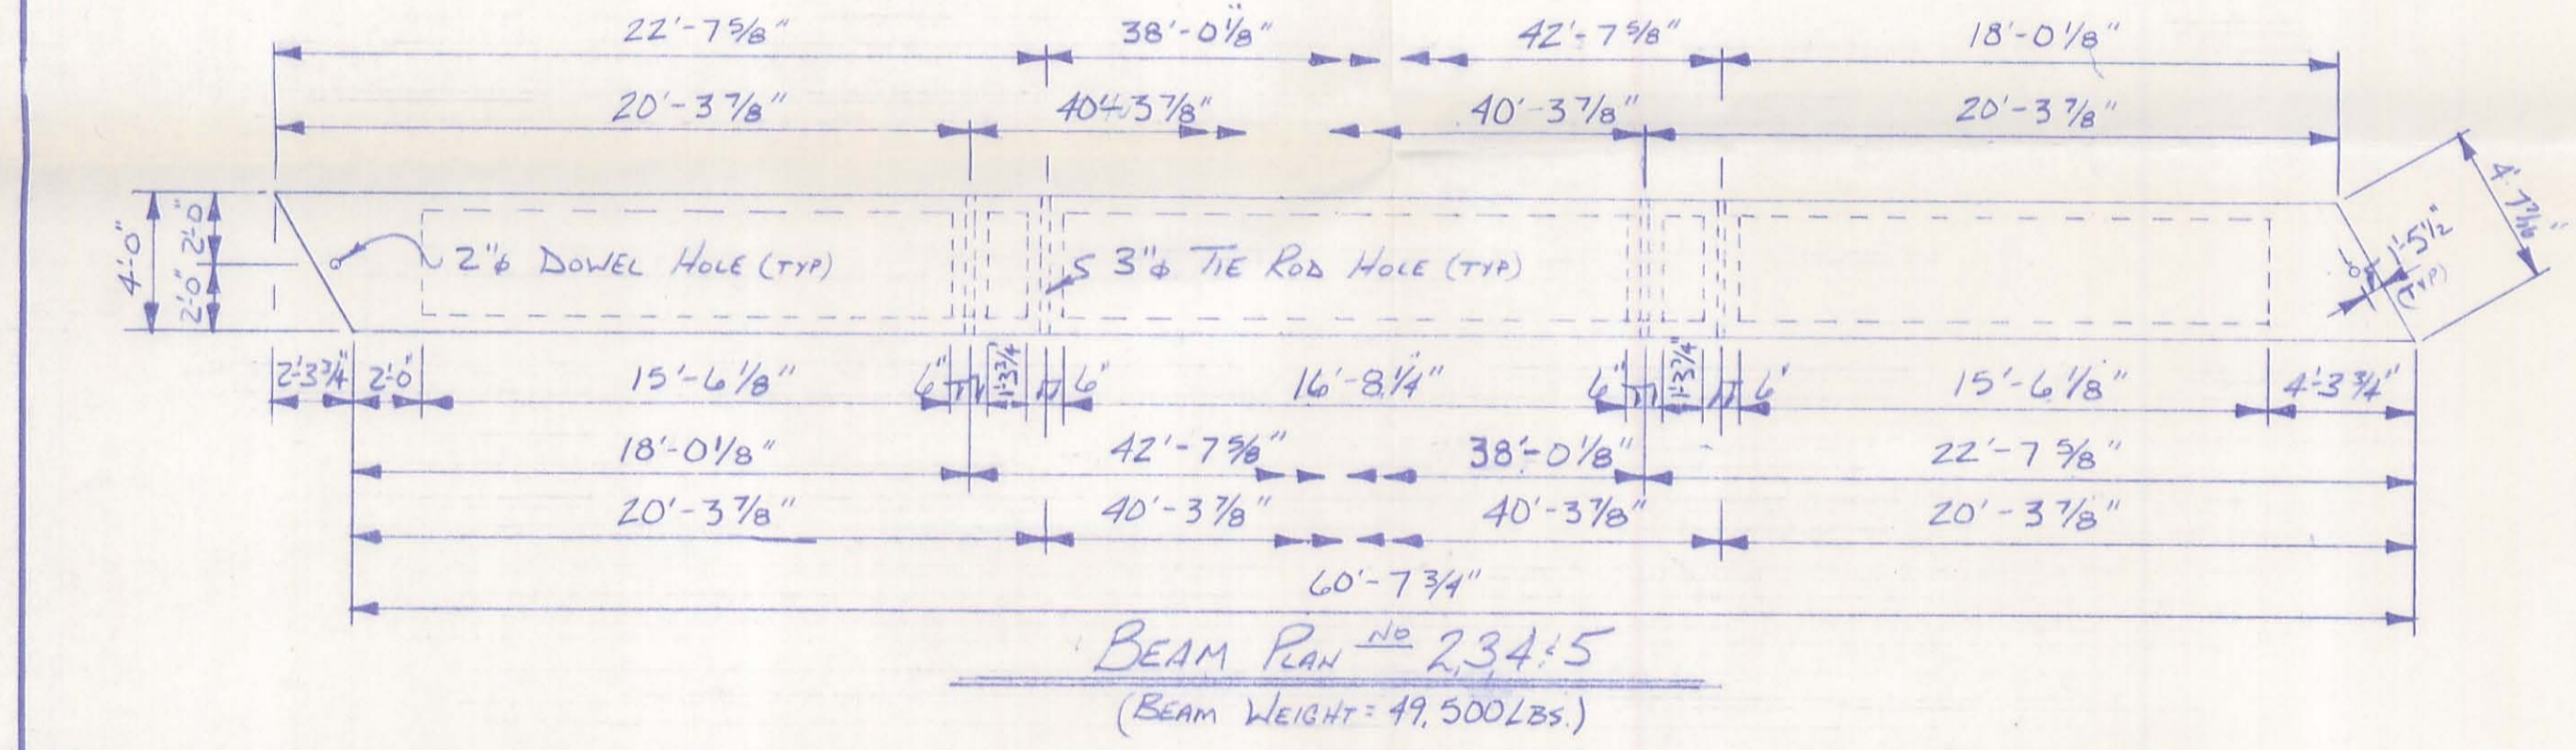 22'-7 5/8" 38'-0 1/8" 42'-7 5/8" 18'-0 1/8"
20'-3 7/8" 40'-3 7/8" 40'-3 7/8" 20'-3 7/8"
4'-0"
2'-0"
2'-0"
2"ø DOWEL HOLE (TYP)
3"ø TIE ROD HOLE (TYP)
1'-5 1/2"
(TYP)
2'-3 3/4" 2'-0" 15'-6 1/8" 6" 1'-3 3/4" 6" 16'-8 1/4" 6" 1'-3 3/4" 6" 15'-6 1/8" 4'-3 3/4"
18'-0 1/8" 42'-7 5/8" 38'-0 1/8" 22'-7 5/8"
20'-3 7/8" 40'-3 7/8" 40'-3 7/8" 20'-3 7/8"
60'-7 3/4"
BEAM PLAN No 2,3,4 & 5
(BEAM WEIGHT = 49,500 LBS.)